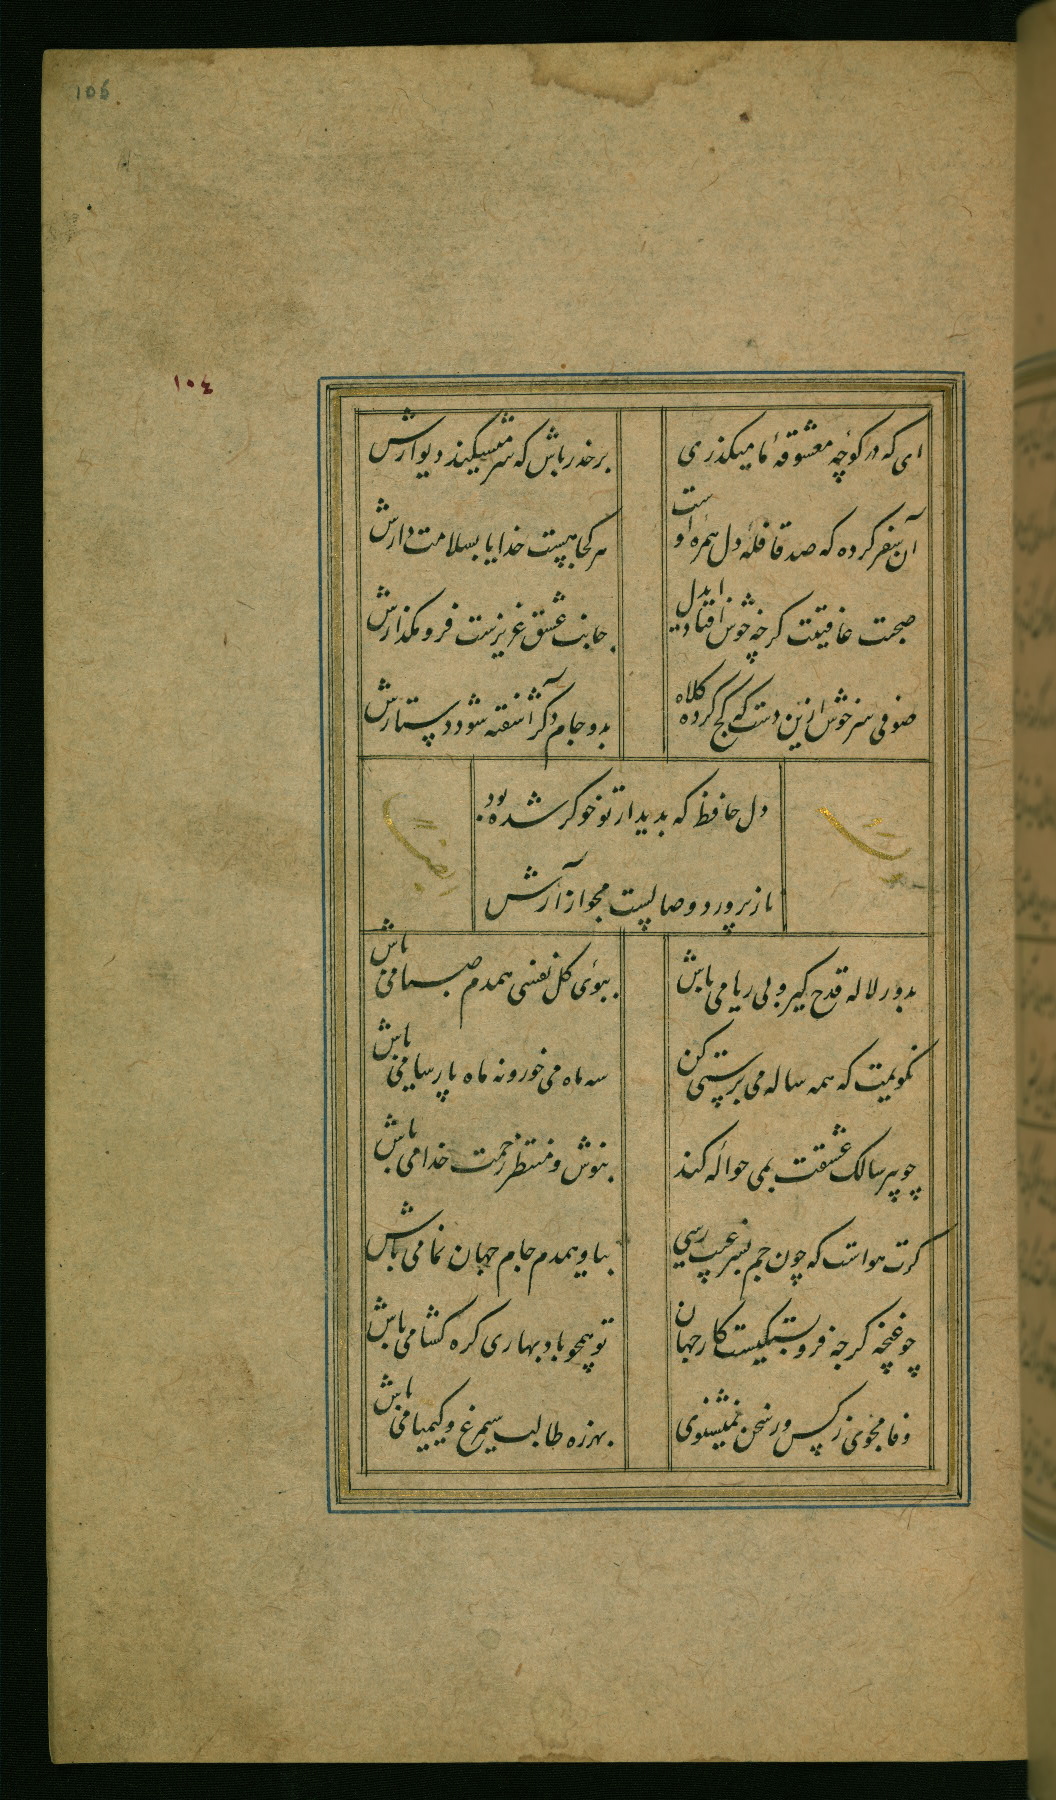 106
١٠٤
ای که در کوچهٔ معشوقهٔ ما میکذری
بر حذر باش که سر میشکند دیوارش
آن سفر کرده که صد قافلهٔ دل همره اوست
هر کجا هست خدایا بسلامت دارش
صحبت عافیتت کرچه خوش افتاد ایدل
جانب عشق عزیزست فرو مکذارش
صوفی سر خوش ازین دست که کج کرده کلاه
بدو جام دکر آشفته شود دستارش
دل حافظ که بدیدار تو خوکر شده بود
ناز پرورد وصالست مجو آزارش
بدور لاله قدح کیر و بی ریا می باش
ببوی کل نفسی همدم صبا می باش
نکویمت که همه ساله می پرستی کن
سه ماه می خور و نه ماه پارسا می باش
چو پیر سالک عشقت بمی حواله کند
بنوش و منتظر رحمت خدا می باش
کرت هواست که چون جم بسر غیب رسی
بیا و همدم جام جهان نما می باش
چو غنچه کرچه فروبستکیست کار جهان
تو همچو باد بهاری کره کشا می باش
وفا مجوی ز کس ور سخن نمیشنوی
بهرزه طالب سیمرغ و کیمیا می باش